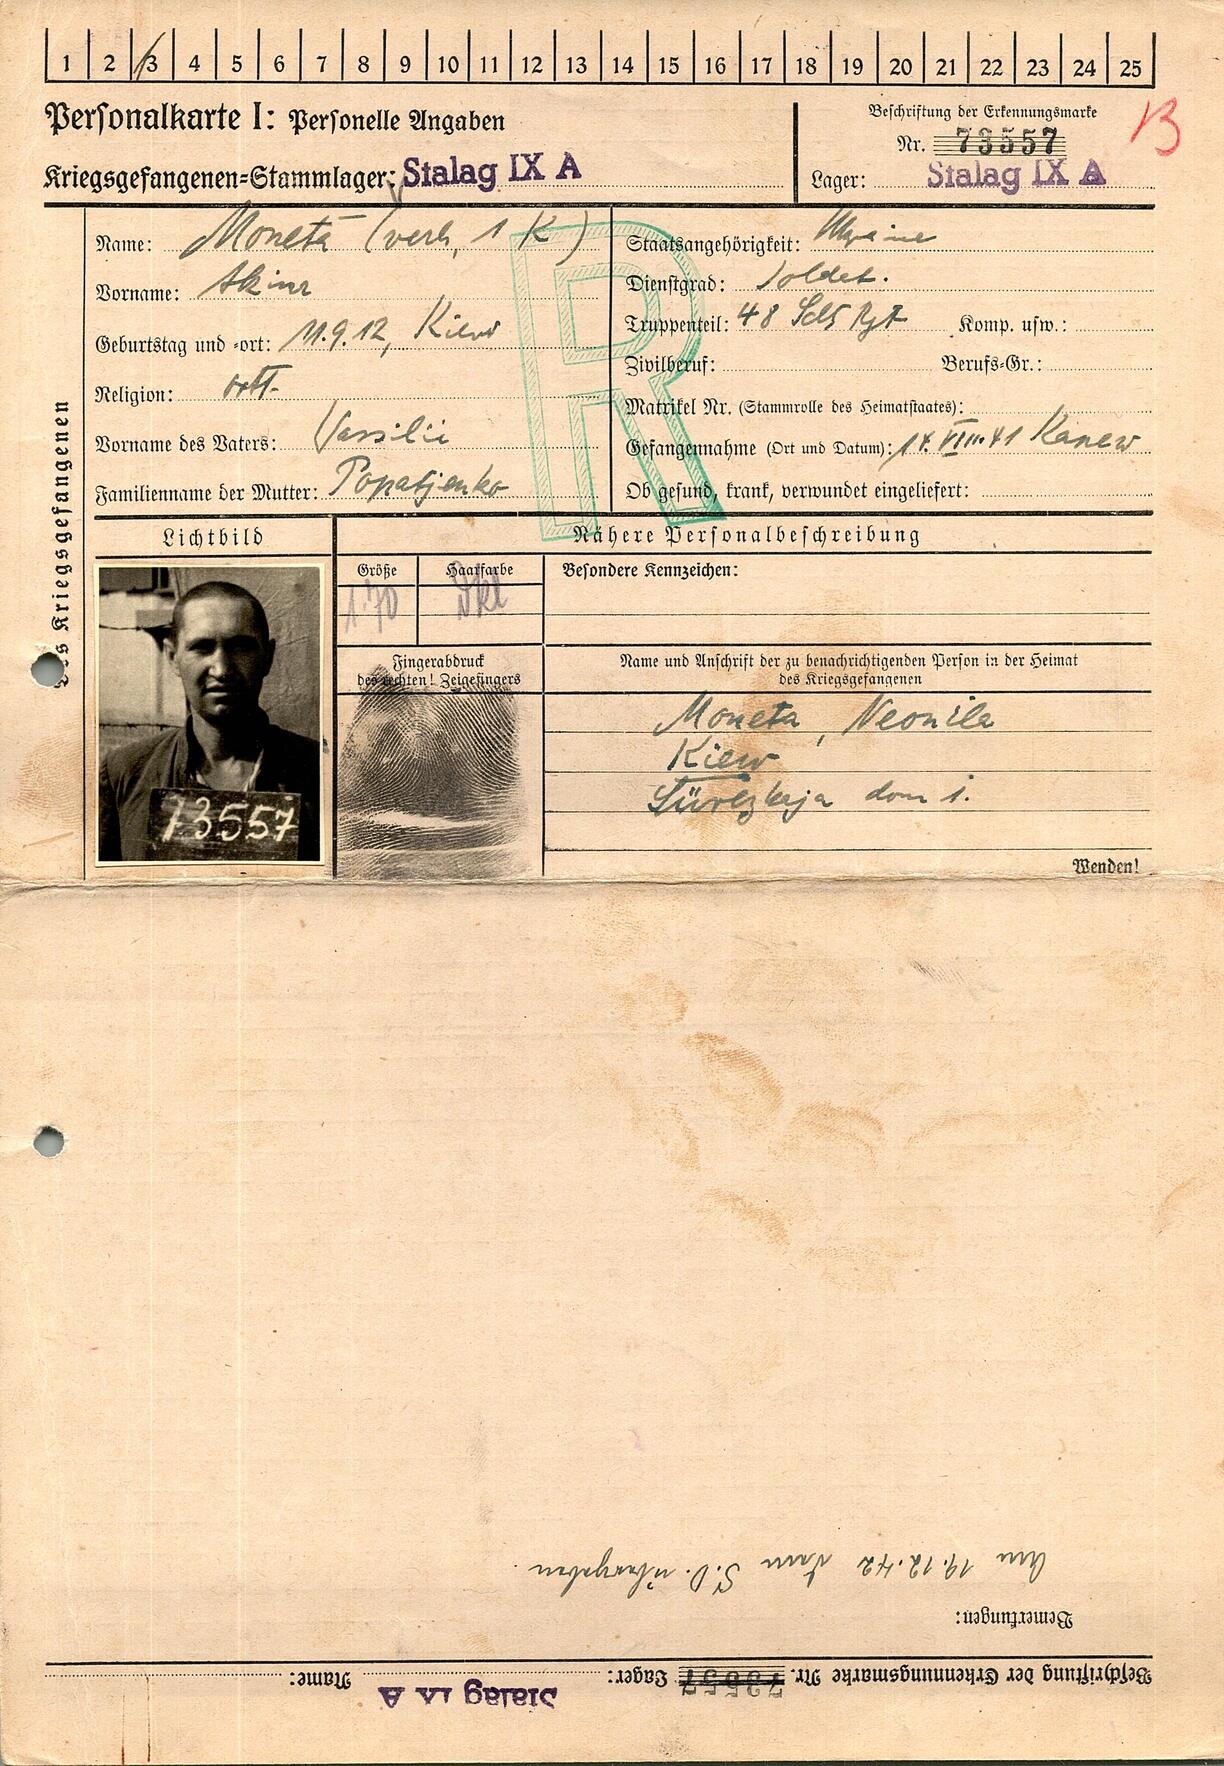 1 2 3 4 5 6 7 8 9 10 11 12 13 14 15 16 17 18 19 20 21 22 23 24 25
Personalkarte I: Personelle Angaben
Kriegsgefangenen=Stammlager: Stalag IX A
Beschriftung der Erkennungsmarke
Nr. 73557
Lager: Stalag IX A
B
des Kriegsgefangenen
Name: Moneta (verh, 1 K)
Vorname:
Geburtstag und =ort: 11.9.12, Kiew
Religion: orth.
Vorname des Vaters: Vassilii
Familienname der Mutter: Popatjenko
R
Staatsangehörigkeit: Ukraine
Dienstgrad: Soldat.
Truppenteil: 48 Sch Rgt Komp. usw.:
Zivilberuf: Berufs=Gr.:
Matrikel Nr. (Stammrolle des Heimatstaates):
Gefangennahme (Ort und Datum): 14.VIII.41 Kanew
Ob gesund, krank, verwundet eingeliefert:
Lichtbild
73557
Nähere Personalbeschreibung
Größe Haarfarbe Besondere Kennzeichen:
1.70 dkl
Fingerabdruck
des rechten! Zeigefingers
Name und Anschrift der zu benachrichtigenden Person in der Heimat
des Kriegsgefangenen
Moneta, Neonila
Kiew
dom 1.
Wenden!
Beschriftung der Erkennungsmarke Nr. 73557 Lager: Stalag IX A Name:
Bemerkungen:
Am 19.12.42 dem S.D. übergeben